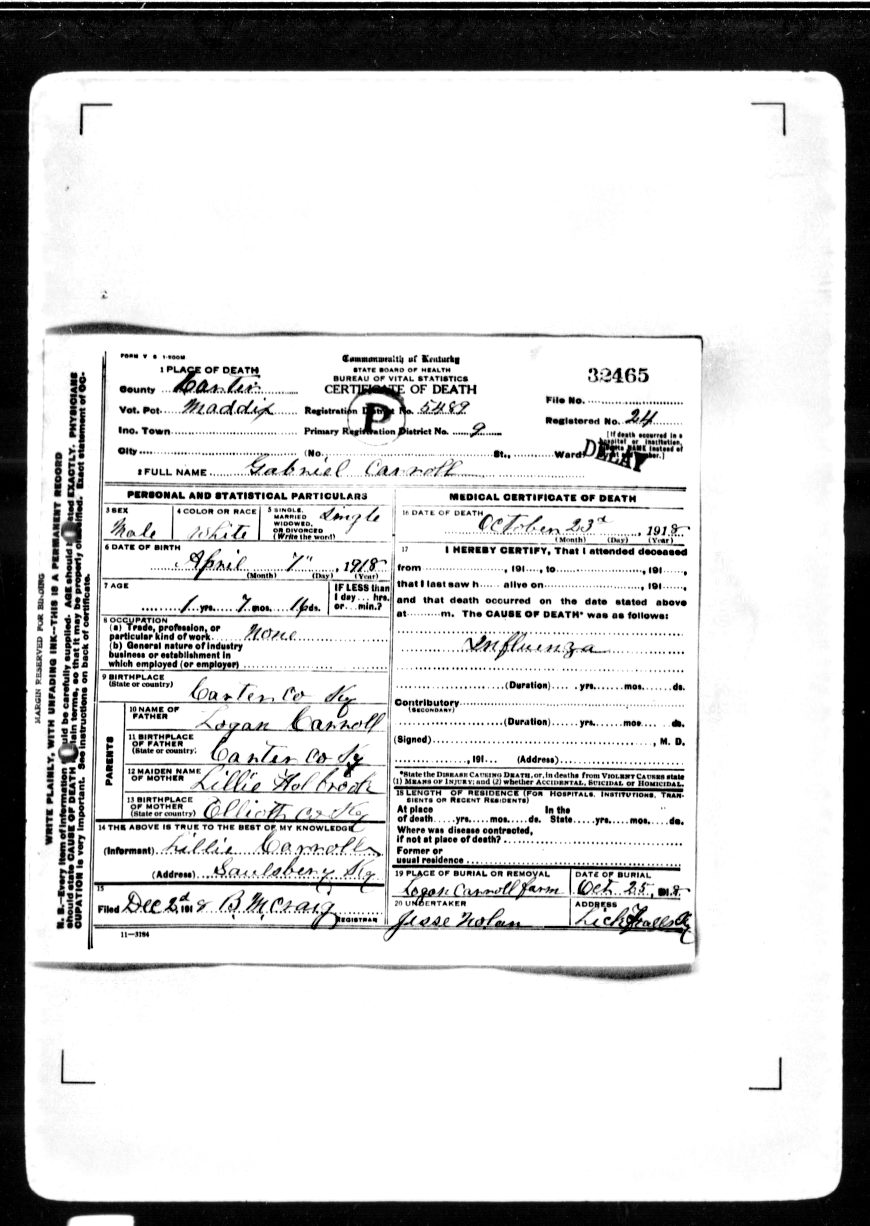 FORM V S 1-200M
Commonwealth of Kentucky
STATE BOARD OF HEALTH
BUREAU OF VITAL STATISTICS
CERTIFICATE OF DEATH
32465
1 PLACE OF DEATH
County Carter
Vot. Pct. Maddix Registration District No. 5489 File No.
Inc. Town Primary Registration District No. 9 Registered No. 24
P
City (No. St., Ward)
[If death occurred in a
hospital or institution,
NAME instead of
DELAY
2 FULL NAME Gabriel Carroll
PERSONAL AND STATISTICAL PARTICULARS
3 SEX
Male
4 COLOR OR RACE
White
5 SINGLE, MARRIED WIDOWED, OR DIVORCED (Write the word)
Single
6 DATE OF BIRTH
April 7" , 1918
(Month) (Day) (Year)
7 AGE
1 yrs. 7 mos. 16 ds.
IF LESS than
1 day ... hrs.
or ... min.?
8 OCCUPATION
(a) Trade, profession, or
particular kind of work None
(b) General nature of industry
business or establishment in
which employed (or employer)
9 BIRTHPLACE
(State or country) Carter Co Ky
PARENTS
10 NAME OF
FATHER Logan Carroll
11 BIRTHPLACE
OF FATHER
(State or country) Carter Co Ky
12 MAIDEN NAME
OF MOTHER Lillie Holbrook
13 BIRTHPLACE
OF MOTHER
(State or country) Elliott Co Ky
14 THE ABOVE IS TRUE TO THE BEST OF MY KNOWLEDGE
(Informant) Lillie Carroll
(Address) Saulsbery Ky
15
Filed Dec 2d, 1918 B McCraig
REGISTRAR
11-3184
MEDICAL CERTIFICATE OF DEATH
16 DATE OF DEATH
October 23d , 1918
(Month) (Day) (Year)
17 I HEREBY CERTIFY, That I attended deceased
from , 191 , to , 191 ,
that I last saw h alive on , 191 ,
and that death occurred on the date stated above
at m. The CAUSE OF DEATH* was as follows:
Influenza
(Duration) yrs. mos. ds.
Contributory
(SECONDARY)
(Duration) yrs. mos. ds.
(Signed) , M. D.
, 191 (Address)
*State the DISEASE CAUSING DEATH, or, in deaths from VIOLENT CAUSES state
(1) MEANS OF INJURY; and (2) whether ACCIDENTAL, SUICIDAL OR HOMICIDAL.
18 LENGTH OF RESIDENCE (FOR HOSPITALS, INSTITUTIONS, TRANSIENTS OR RECENT RESIDENTS)
At place In the
of death yrs. mos. ds. State yrs. mos. ds.
Where was disease contracted,
if not at place of death?
Former or
usual residence
19 PLACE OF BURIAL OR REMOVAL
Logan Carroll farm
DATE OF BURIAL
Oct 25, 1918
20 UNDERTAKER
Jesse Nolan
ADDRESS
Lick Falls Ky
MARGIN RESERVED FOR BINDING
WRITE PLAINLY, WITH UNFADING INK—THIS IS A PERMANENT RECORD
N. B.—Every item of information should be carefully supplied. AGE should be stated EXACTLY. PHYSICIANS
should state CAUSE OF DEATH in plain terms, so that it may be properly classified. Exact statement of OC-
CUPATION is very important. See instructions on back of certificate.